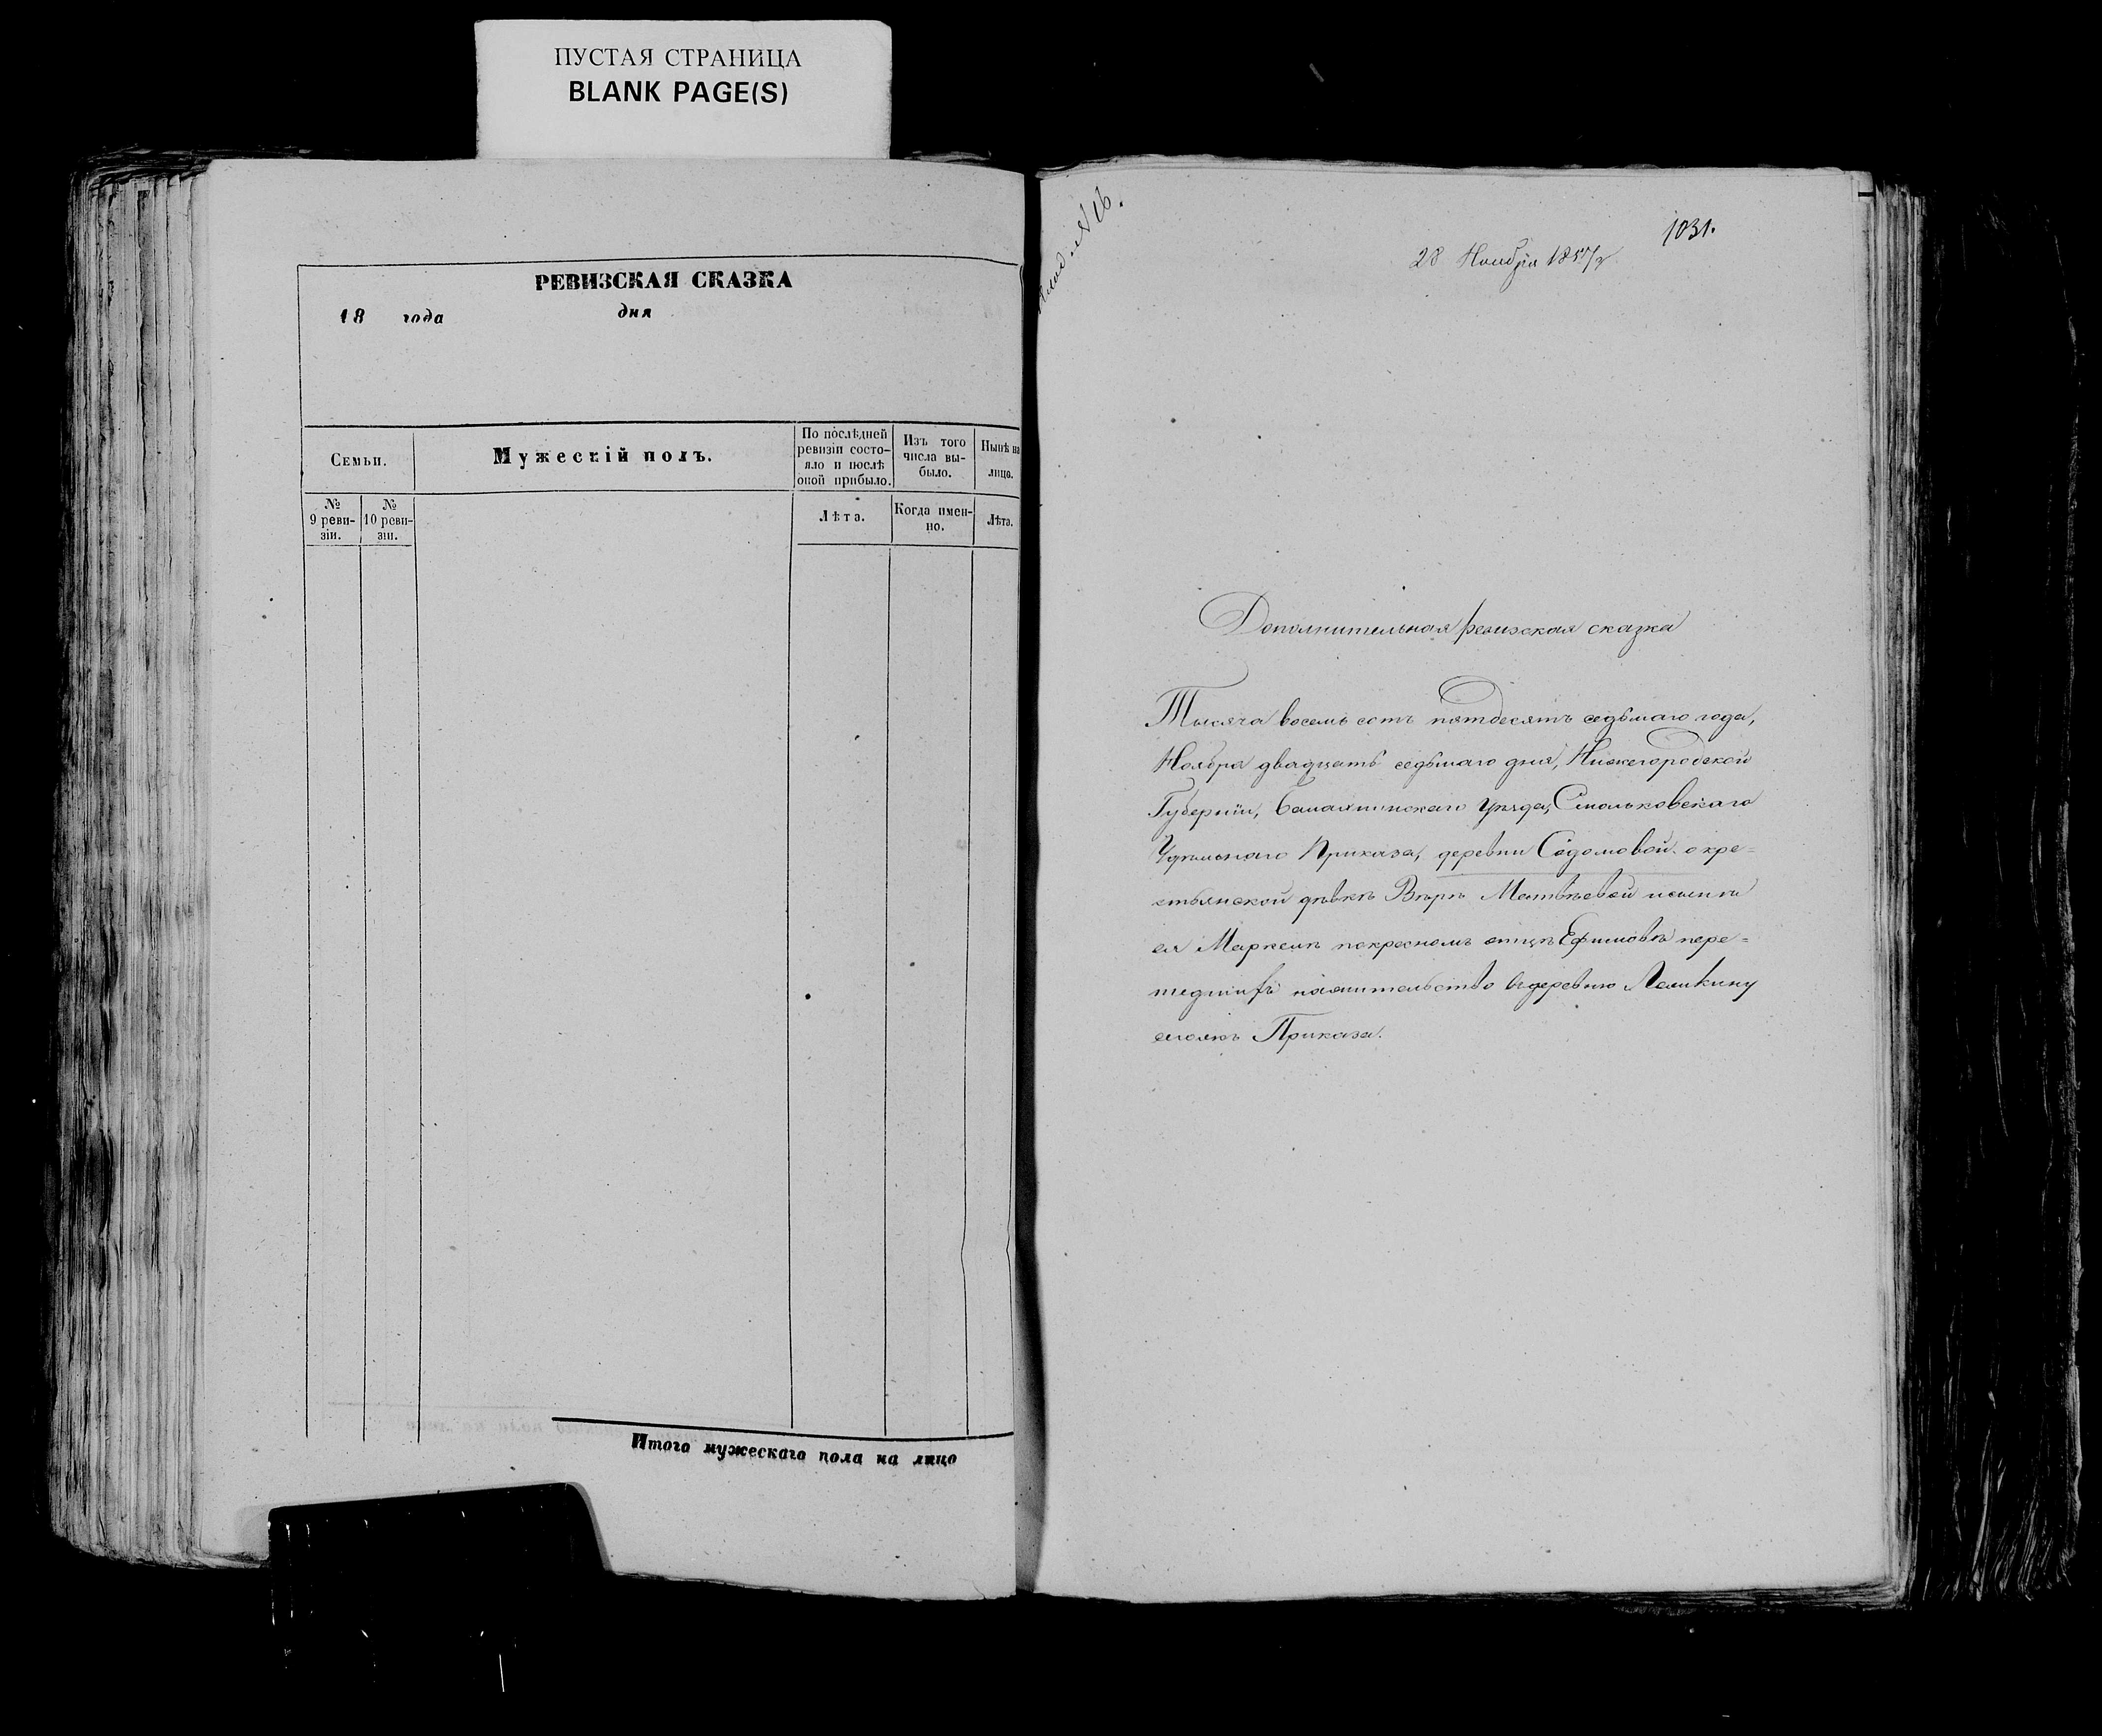 ПУСТАЯ СТРАНИЦА
BLANK PAGE(S)
РЕВИЗСКАЯ СКАЗКА
18 года дня
Семьи.
Мужескій полъ.
По послѣдней ревизіи состо-
яло и послѣ
оной прибыло.
Изъ того
числа вы-
было.
Нынѣ на
лицо.
№
9 реви-
зіи.
№
10 реви-
зіи.
Лѣта.
Когда имен-
но.
Лѣта.
Итого мужескаго пола на лицо
№ 16.
1031.
28 Ноября 1857/
Дополнительная ревизская сказка
Тысяча восемь сотъ пятдесятъ седьмаго года,
Ноября двадцать седьмаго дня, Нижегородской
Губерніи, Балахнинскаго Уѣзда, Смольковскаго
Удѣльнаго Приказа, деревни Садомовой о кре=
стьянской дѣвкѣ Вѣрѣ Матвѣевой и сынѣ
ея Маркелѣ по крестномъ отцѣ Ефимовѣ пере=
шедшихъ на жительство въ деревню
Приказа.